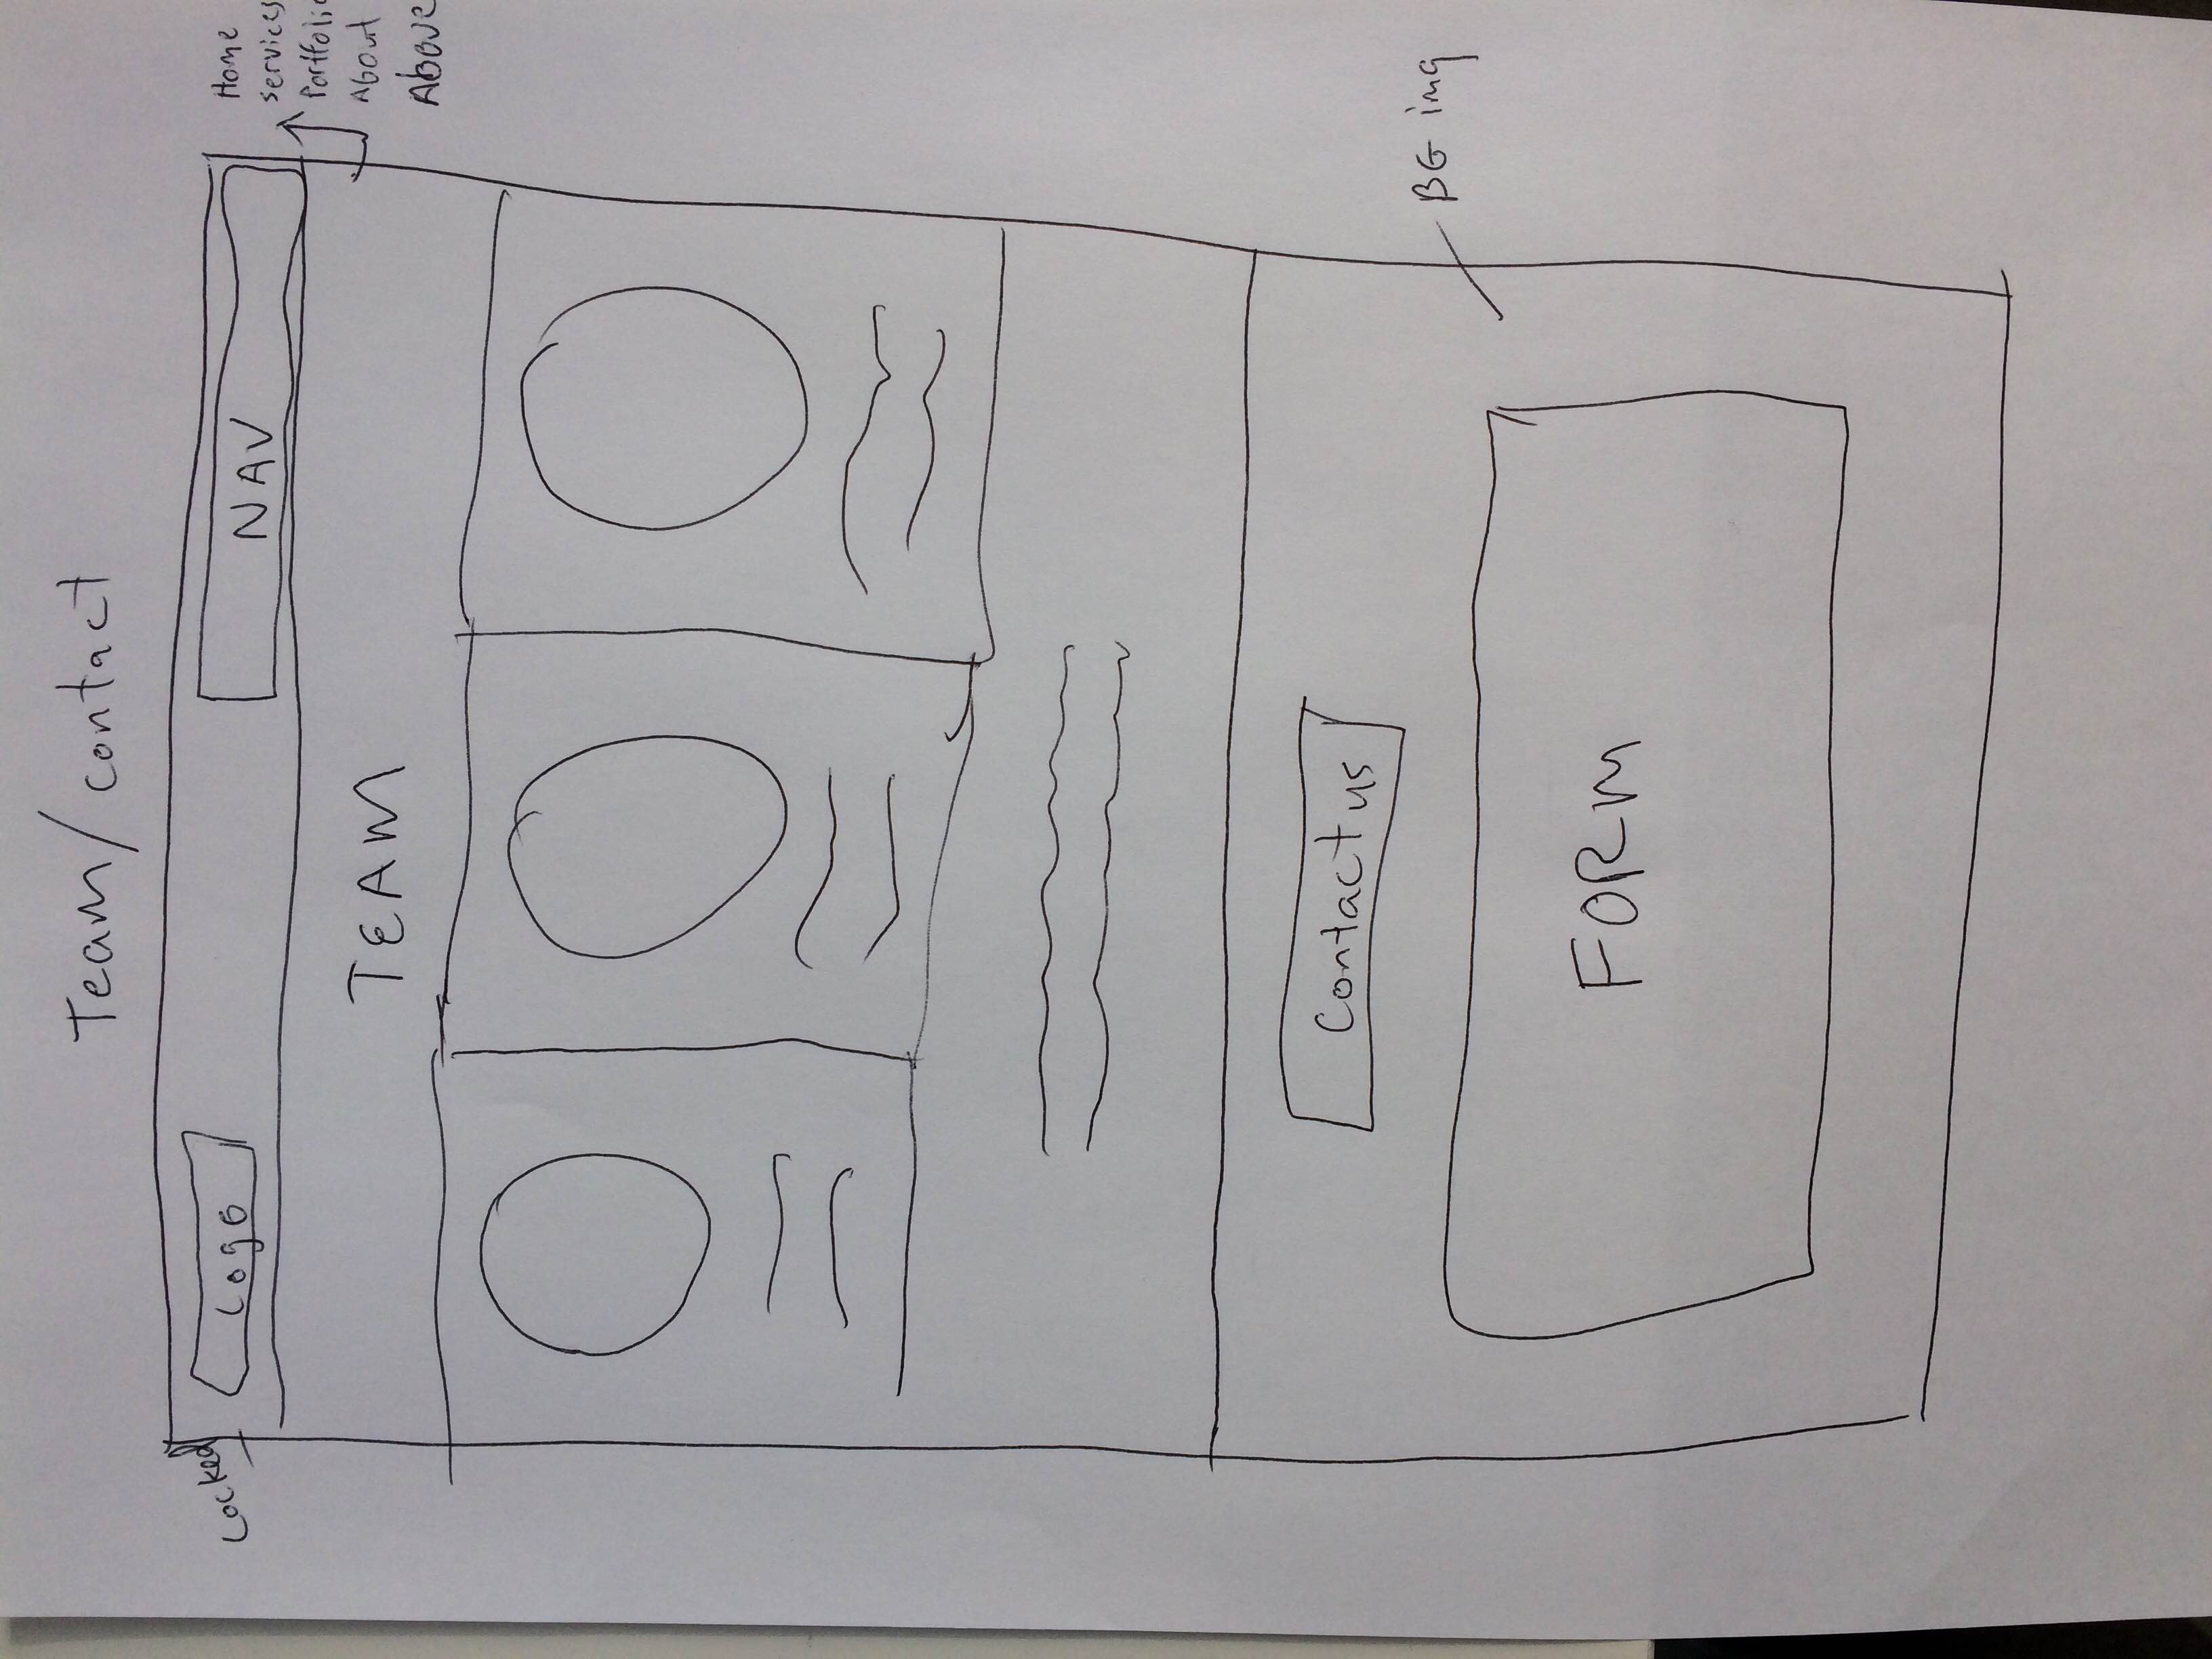 Team/contact
Locked
Logo
NAV
Home
Services
Portfolio
About
Above
TEAM
Contact us
BG img
FORM